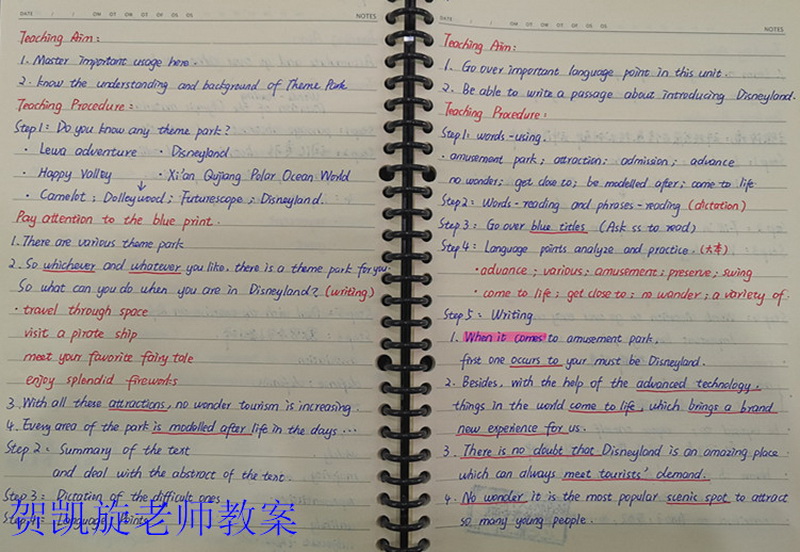 DATE / / ON OT ON OT OF OS OS NOTES
Teaching Aim:
1. Master important usage here.
2. know the understanding and background of Theme Park
Teaching Procedure:
Step1: Do you know any theme park?
· Lewa adventure · Disneyland
· Happy Valley · Xi'an Qujiang Polar Ocean World
· Camelot; Dolleywood; Futurescope; Disneyland.
Pay attention to the blue print.
1. There are various theme park
2. So whichever and whatever you like, there is a theme park for you.
So what can you do when you are in Disneyland? (writing)
· travel through space
visit a pirate ship
meet your favorite fairy tale
enjoy splendid fireworks
3. With all these attractions, no wonder tourism is increasing.
4. Every area of the park is modelled after life in the days ...
Step 2: Summary of the text
and deal with the abstract of the text.
Step 3: Dictation of the difficult ones
Step 4: Language Points
贺凯旋老师教案
DATE / / ON OT ON OT OF OS OS NOTES
Teaching Aim:
1. Go over important language point in this unit.
2. Be able to write a passage about introducing Disneyland.
Teaching Procedure:
Step1: words-using.
· amusement park; attraction; admission; advance
no wonder; get close to; be modelled after; come to life
Step 2: Words-reading and phrases-reading (dictation)
Step 3: Go over blue titles (Ask ss to read)
Step 4: Language points analyze and practice. (大本)
· advance; various; amusement; preserve; swing
· come to life; get close to; no wonder; a variety of.
Step 5: Writing
1. When it comes to amusement park,
first one occurs to your must be Disneyland.
2. Besides, with the help of the advanced technology.
things in the world come to life, which brings a brand
new experience for us.
3. There is no doubt that Disneyland is an amazing place
which can always meet tourists' demand.
4. No wonder it is the most popular scenic spot to attract
so many young people.